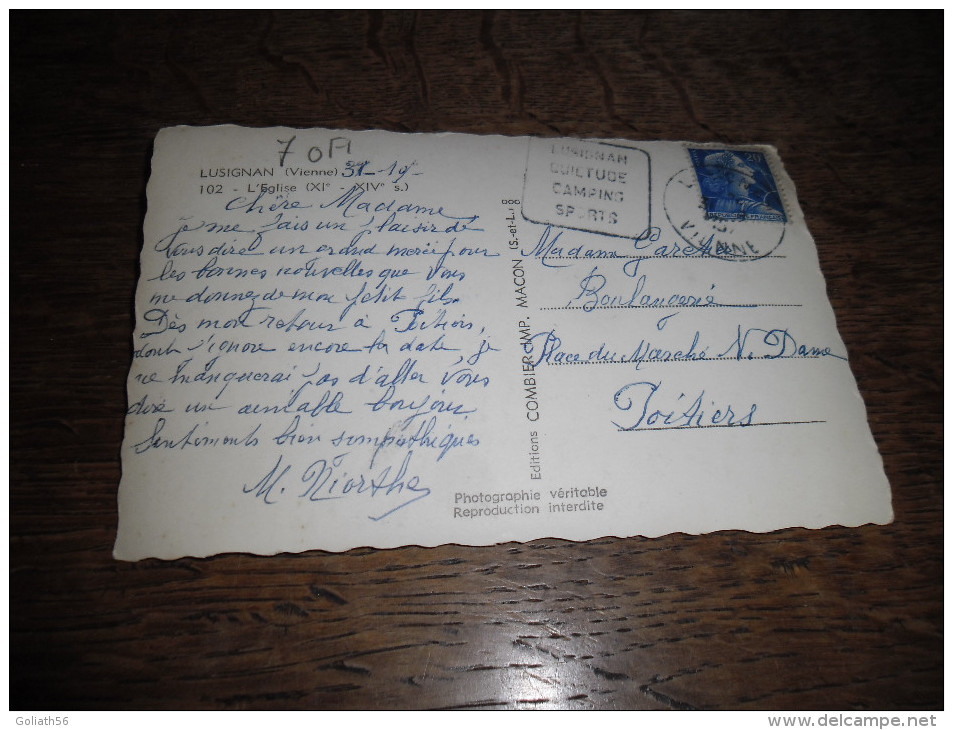 7 OPL
LUSIGNAN (Vienne) 31-
102 - L'Eglise (XI° - XIV° s.)
Chère Madame
je me fais un plaisir de
vous dire un grand merci pour
les bonnes nouvelles que vous
me donnez de mon petit fils.
Dès mon retour à Poitiers,
dont j'ignore encore la date, je
ne manquerai pas d'aller vous
dire un aimable bonjour
Sentiments bien sympathiques
M.
Editions COMBIER IMP. MACON (S.-et-L.)
Photographie véritable
Reproduction interdite
LUSIGNAN
QUIETUDE
CAMPING
SPORTS
20F
REPUBLIQUE FRANÇAISE
VIENNE
Madame
Boulangerie
Place du Marché N. Dame
Poitiers
Goliath56
www.delcampe.net